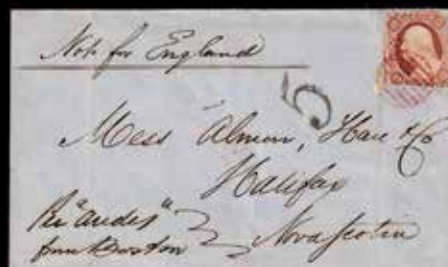 Not for England
5
Mess Almon, Hare & Co
Halifax
Per "Andes"
from Boston
Nova Scotia